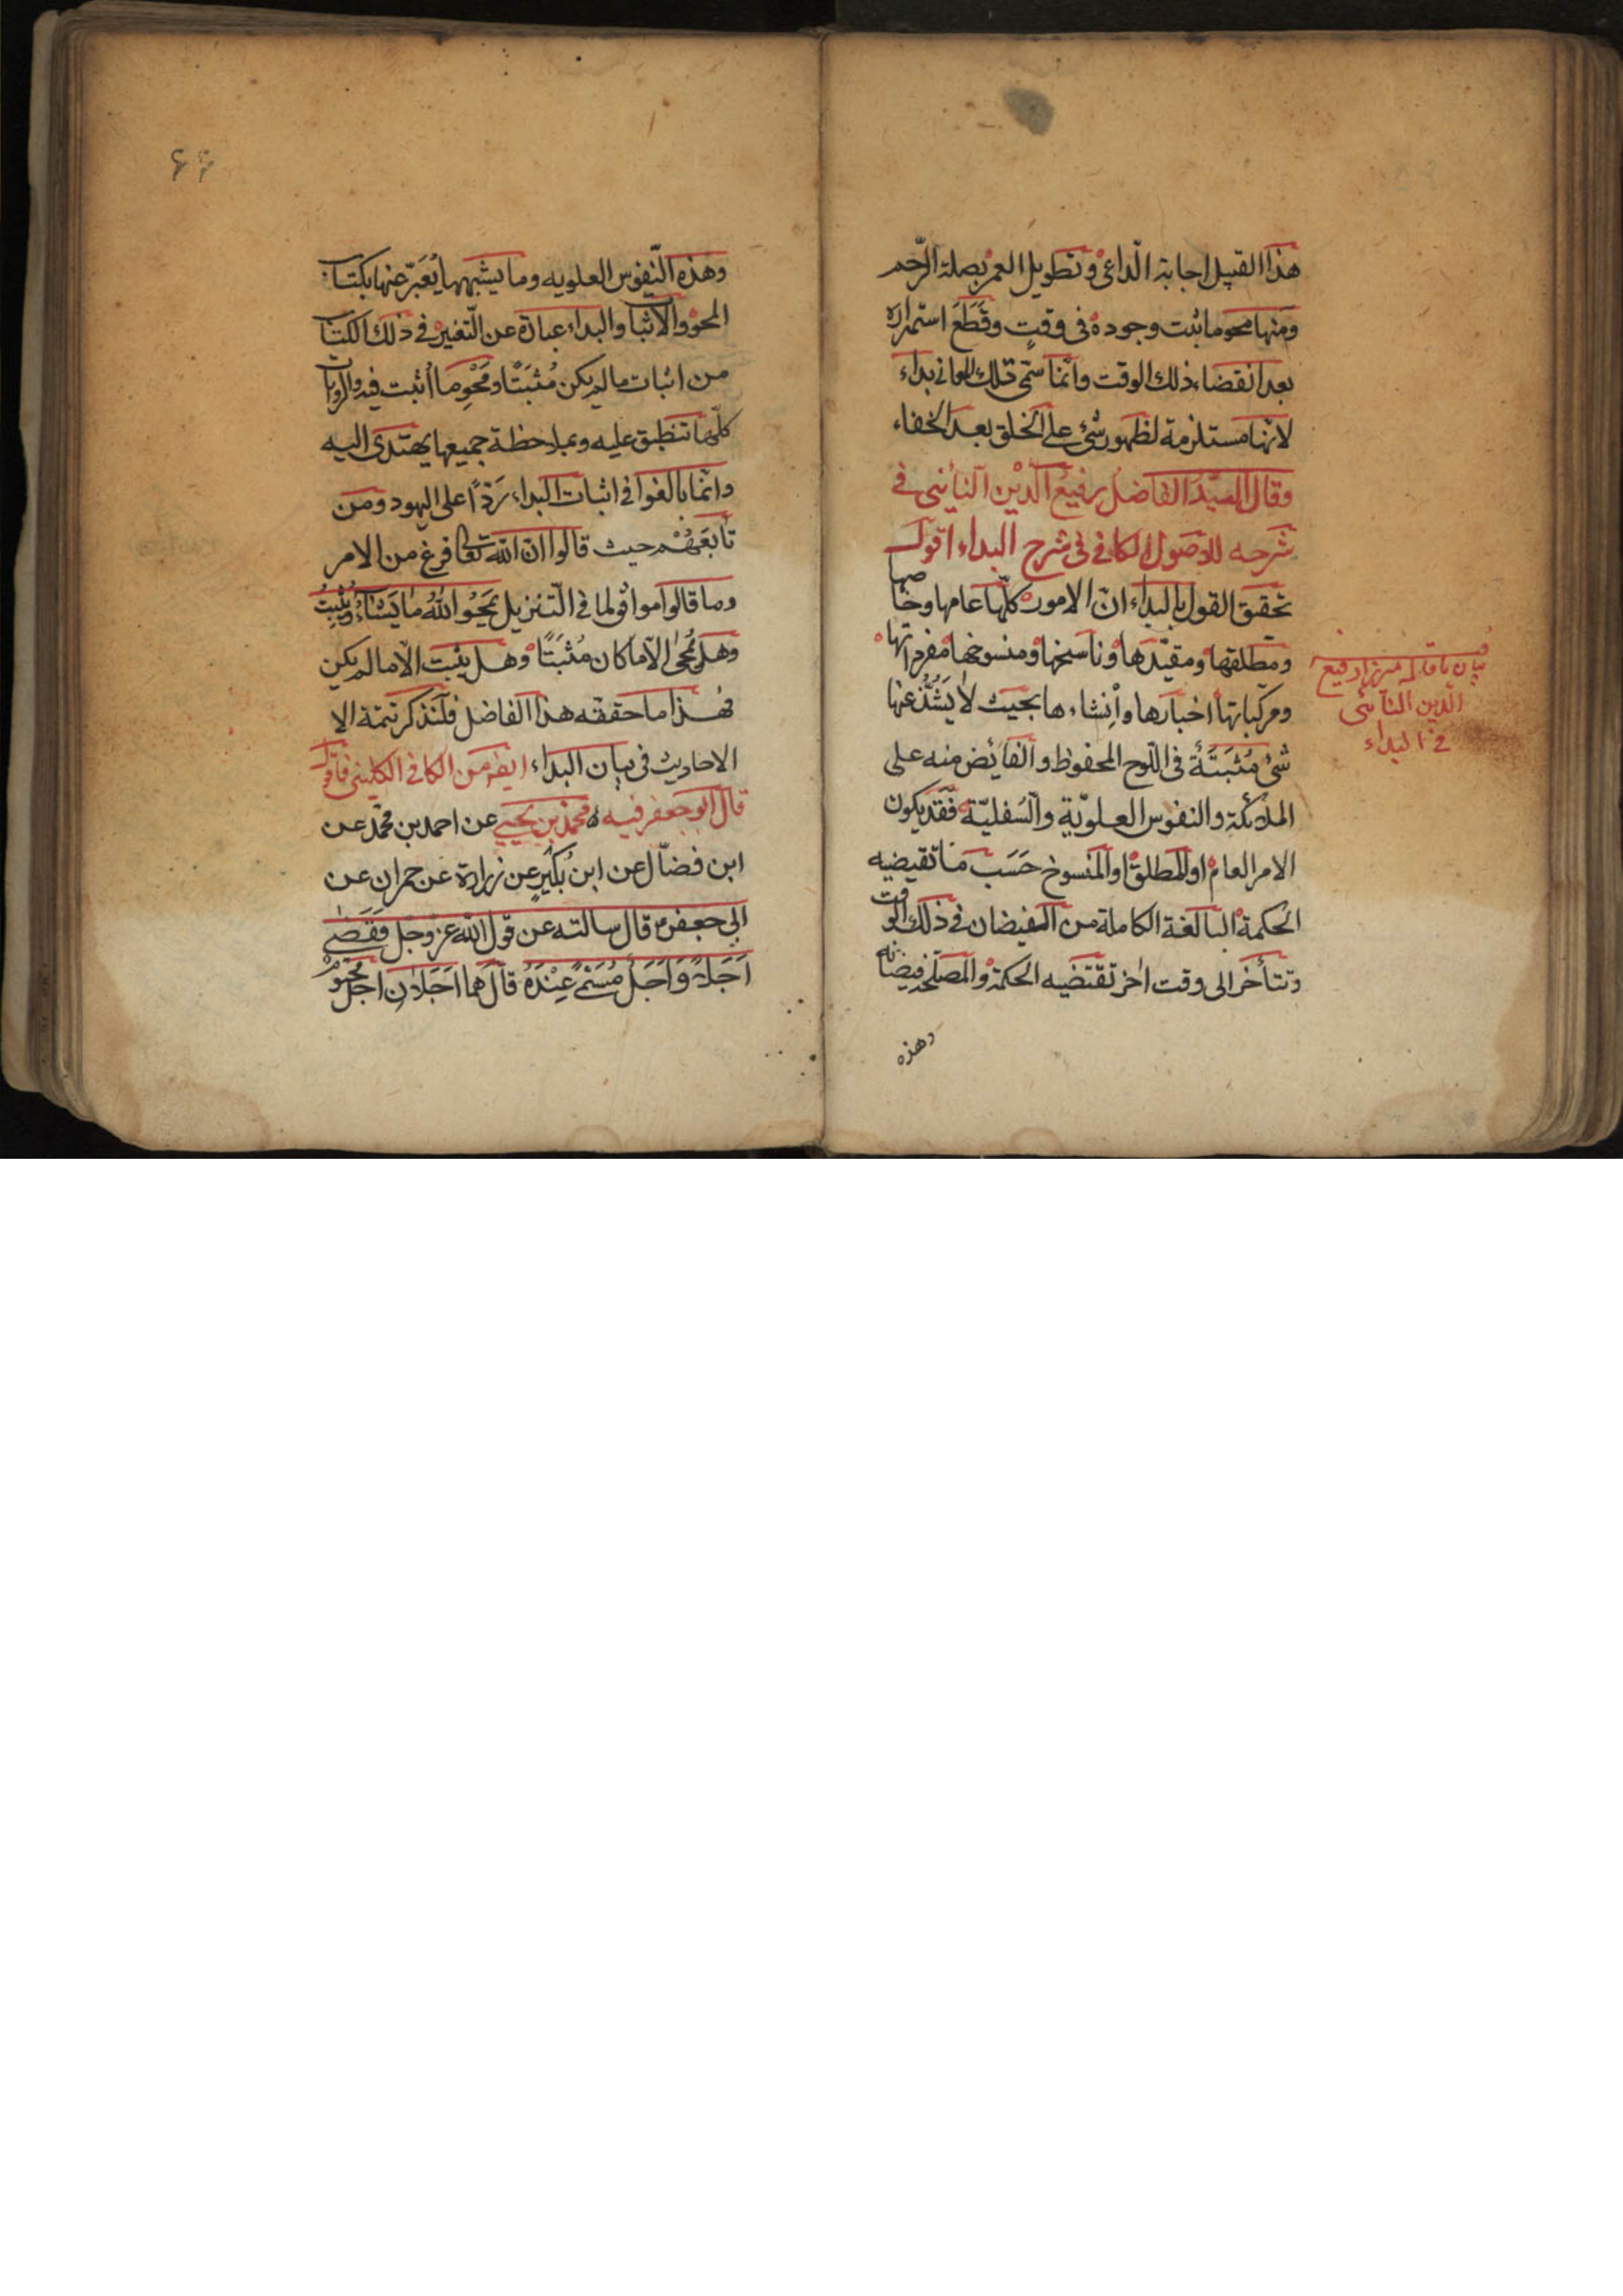 هذا القبيل اجابة الداعى وتطويل العمر بصلة الرّحم
ومنها محو ما ثبت وجوده فى وقتٍ وقَطَعَ استمراره
بعد انقضاء ذلك الوقت وانّما سمّى تلك المعانى بداء
لانّها مستلزمة لظهور شئ على الخلق بعد الخفاء
وقال السيّد الفاضل رفيع الدّين النائنى فى
شرحه للاصول الكافى فى شرح البداء اقول
تحقيق القول بالبداء انّ الامور كلّها عامها وخاصها
ومطلقها ومقيّدها وناسخها ومنسوخها مفرداتها
ومركباتها اخبارها وانشاءها بحيث لا يَشُذّ عنها
شئ مُثبَتَةٌ فى اللّوح المحفوظ والفائض منه على
الملائكة والنفوس العلويّة والسّفليّة فقد يكون
الامر العام او المطلق او المنسوخ حَسَب ما تقيضيه
الحكمة البالغة الكاملة من الفيضان فى ذلك الوقت
وتتأخر الى وقت اخر تقتضيه الحكمة والمصلحة فيضانه
وهذه
بيان ما قاله ميرزا رفيع
الدّين النائنى
فى البداء
۶۶
وهذه النّفوس العلويه وما يشبهها يُعَبّر عنها بكتاب
المحو والاثبات والبداء عبارة عن التّغير فى ذلك الكتاب
من اثبات ما لم يكن مُثبَتًا ومَحْوِ ما اُثبت فيه والروايات
كلّها تنطبق عليه وبملاحظة جميعها يهتدى اليه
وانّما بالغوا فى اثبات البداء رَدًّا على اليهود ومن
تابَعَهُمْ حيث قالوا ان الله تعالى فرغ من الامر
وما قالوا موافق لما فى التّنزيل يَمْحُو اللهُ ما يَشاءُ ويُثْبِتُ
وهل يُمحى الّا ما كان مُثبَتًا وهل يثبت الّا ما لم يكن
فهذا ما حققه هذا الفاضل فلنذكر تتمة الا
الاحاديث فى بيان البداء ايضا من الكافى الكلينى فاقول
قال ابو جعفر فيه محمّد بن يحيى عن احمد بن محمّد عن
ابن فضّال عن ابن بُكَيرٍ عن زرارة عن حمران عن
ابى جعفر ع قال سالته عن قول الله عز وجل فَقَضى
اَجَلاً وَاَجَلٌ مُسَمًّى عِنْدَهُ قال هما اَجَلان اجل محتوم